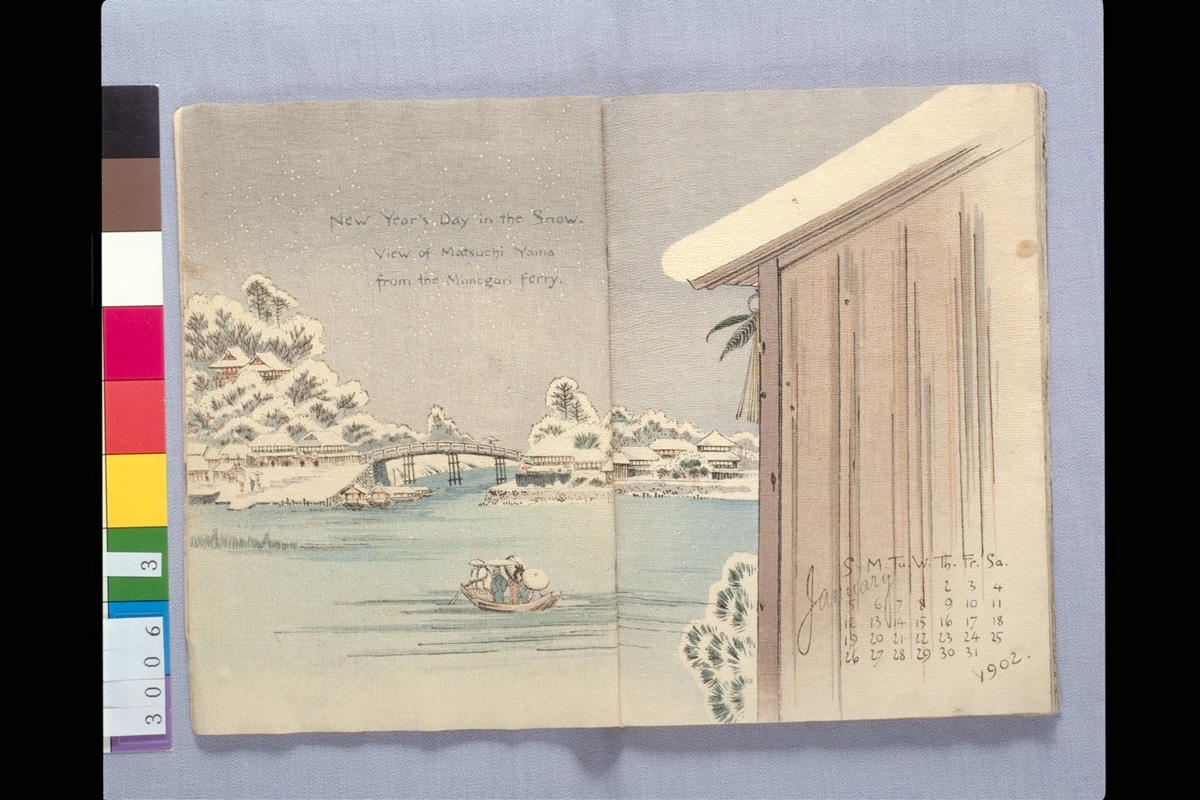 New Year's Day in the Snow.
View of Matsuchi Yama
from the Mimeguri Ferry.
January
S. M. Tu. W. Th. Fr. Sa.
2 3 4
5 6 7 8 9 10 11
12 13 14 15 16 17 18
19 20 21 22 23 24 25
26 27 28 29 30 31
1902.
3
3006